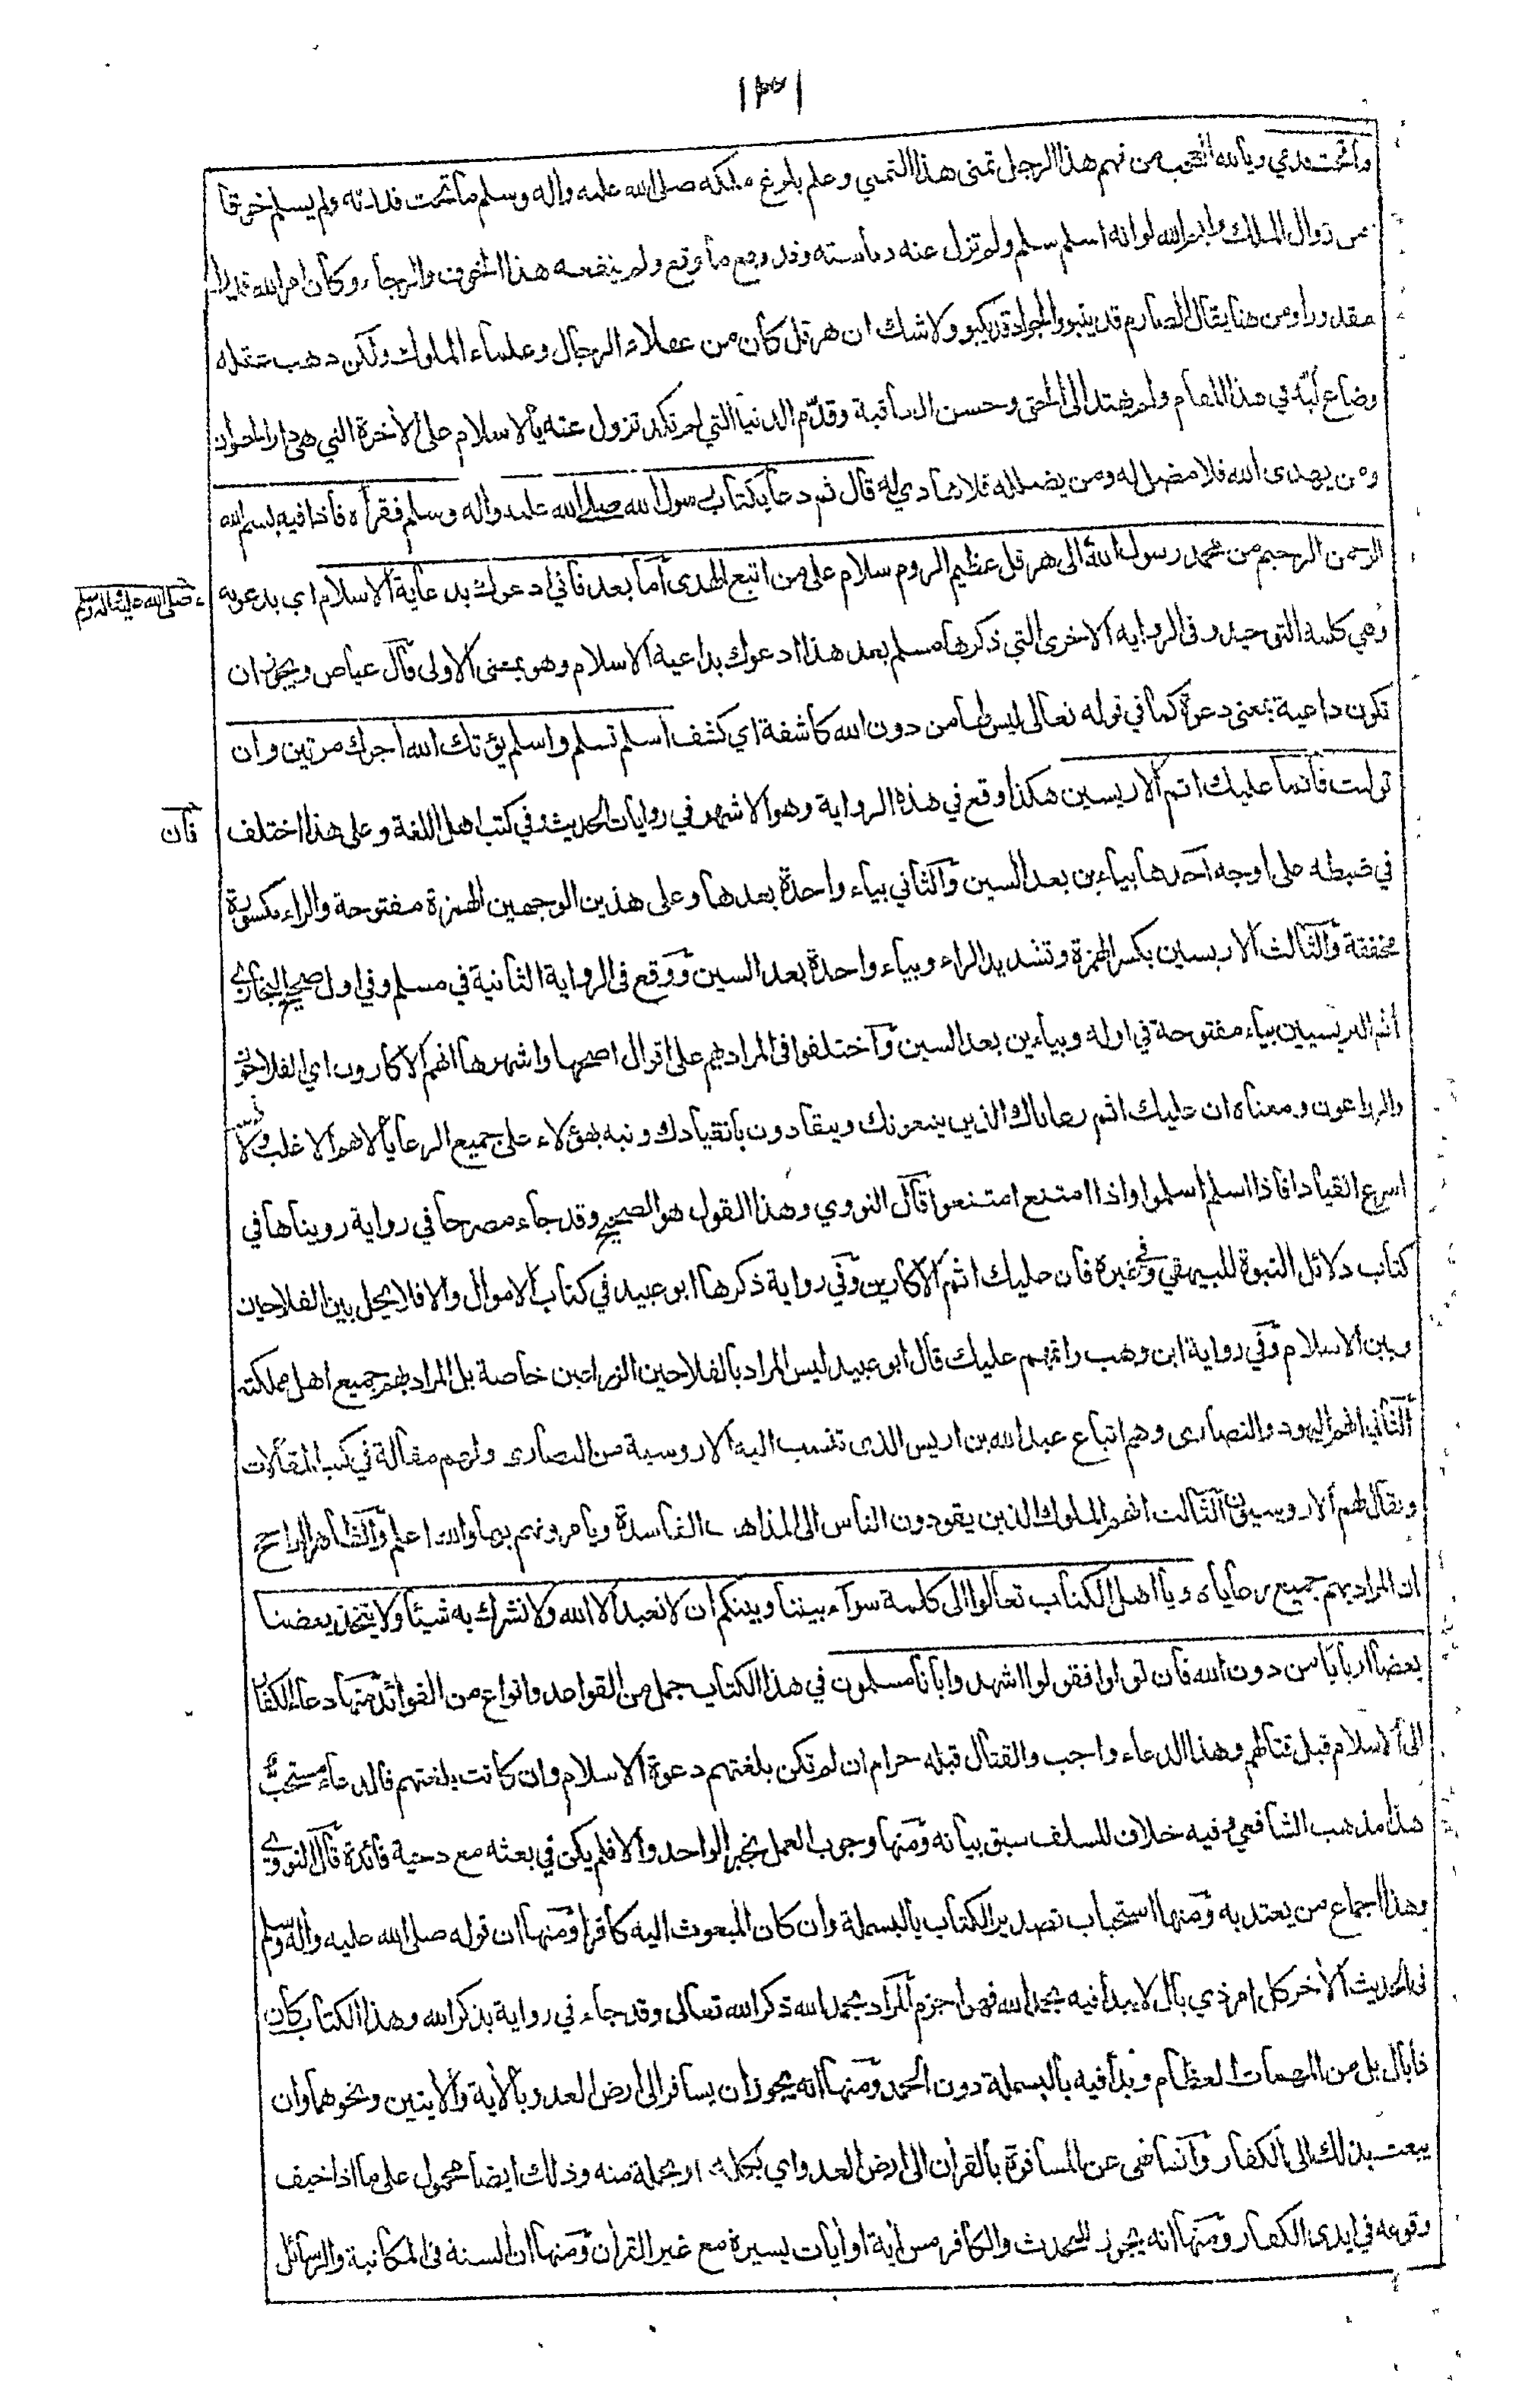 ١٣١
ما تحت قدمي ويالله العجب من فهم هذا الرجل تمنى هذا التمني وعلم بلوغ ملكه صلى الله عليه واله وسلم ما تحت قدميه ولم يسلم خوفا
من زوال الملك وايم الله لو انه اسلم سلم ولم تزل عنه رياسته وقد وقع ما وقع ولم ينفعه هذا الخوف والرجاء وكان امر الله قدرا
مقدورا ومن هنا يقال الصارم قد ينبو والجواد قد يكبو ولا شك ان هرقل كان من عقلاء الرجال وعلماء الملوك ولكن ذهب عقله
وضاع لبه في هذا المقام ولم يهتد الى الحق وحسن العاقبة وقدّم الدنيا التي لم تكد تزول عنه بالاسلام على الاخرة التي هي دار الحيوان
ومن يهدى الله فلا مضل له ومن يضلله فلا هادي له قال ثم دعا بكتاب رسول الله صلى الله عليه واله وسلم فقرأه فاذا فيه بسم الله
الرحمن الرحيم من محمد رسول الله الى هرقل عظيم الروم سلام على من اتبع الهدى أما بعد فاني ادعوك بدعاية الاسلام اي بدعوته
صلى الله عليه واله وسلم
وهي كلمة التوحيد وفي الرواية الاخرى التي ذكرها مسلم بعد هذا ادعوك بداعية الاسلام وهو بمعنى الاولى قال عياض ويجوز ان
تكون داعية بمعنى دعوة كما في قوله تعالى ليس لها من دون الله كاشفة اي كشف اسلم تسلم واسلم يؤتك الله اجرك مرتين وان
توليت فانما عليك اثم الاريسين هكذا وقع في هذه الرواية وهو الاشهر في روايات الحديث وفي كتب اهل اللغة وعلى هذا اختلف
فان
في ضبطه على اوجه احدها بياءين بعد السين والثاني بياء واحدة بعدها وعلى هذين الوجهين الهمزة مفتوحة والراء مكسورة
مخففة والثالث الاريسين بكسر الهمزة وتشديد الراء وبياء واحدة بعد السين ووقع في الرواية الثانية في مسلم وفي اول صحيح البخاري
اثم اليريسيين بياء مفتوحة في اوله وبياءين بعد السين واختلفوا في المراد بهم على اقوال اصحها واشهرها انهم الاكارون اي الفلاحون
والزراعون ومعناه ان عليك اثم رعاياك الذين يتبعونك وينقادون بانقيادك ونبه بهؤلاء على جميع الرعايا لانهم الاغلب ولانهم
اسرع انقيادا فاذا اسلم اسلموا واذا امتنع امتنعوا قال النووي وهذا القول هو الصحيح وقد جاء مصرحا في رواية رويناها في
كتاب دلائل النبوة للبيهقي وفي غيره فان عليك اثم الاكارين وفي رواية ذكرها ابو عبيد في كتاب الاموال والا فلا يحل بين الفلاحين
وبين الاسلام وفي رواية ابن وهب واثمهم عليك قال ابو عبيد ليس المراد بالفلاحين الزراعين خاصة بل المراد بهم جميع اهل مملكته
الثاني انهم اليهود والنصارى وهم اتباع عبد الله بن اريس الذى تنسب اليه الاروسية من النصارى ولهم مقالة في كتب المقالات
ويقال لهم الاروسيون الثالث انهم الملوك الذين يقودون الناس الى المذاهب الفاسدة ويامرونهم بها والله اعلم والظاهر الراجح
ان المراد بهم جميع رعاياه ويا اهل الكتاب تعالوا الى كلمة سواء بيننا وبينكم ان لا نعبد الا الله ولا نشرك به شيئا ولا يتخذ بعضنا
بعضا اربابا من دون الله فان تولوا فقولوا اشهدوا بانا مسلمون في هذا الكتاب جمل من القواعد وانواع من الفوائد منها دعاء الكفار
الى الاسلام قبل قتالهم وهذا الدعاء واجب والقتال قبله حرام ان لم تكن بلغتهم دعوة الاسلام وان كانت بلغتهم فالدعاء مستحب
هذا مذهب الشافعي وفيه خلاف للسلف سبق بيانه ومنها وجوب العمل بخبر الواحد والا فلم يكن في بعثه مع دحية فائدة قال النووي
وهذا اجماع من يعتد به ومنها استحباب تصدير الكتاب بالبسملة وان كان المبعوث اليه كافرا ومنها ان قوله صلى الله عليه واله وسلم
في الحديث الاخر كل امر ذي بال لا يبدأ فيه بحمد الله فهو اجزم المراد بحمد الله ذكر الله تعالى وقد جاء في رواية بذكر الله وهذا الكتاب كان
ذا بال بل من المهمات العظام وبدأ فيه بالبسملة دون الحمد ومنها انه يجوز ان يسافر الى ارض العدو بالاية والايتين ونحوهما وان
يبعث بذلك الى الكفار وانما نهى عن المسافرة بالقرآن الى ارض العدو اي بكله او بجملة منه وذلك ايضا محمول على ما اذا خيف
وقوعه في ايدى الكفار ومنها انه يجوز للمحدث والكافر مس آية او آيات يسيرة مع غير القرآن ومنها ان السنة في المكاتبة والرسائل